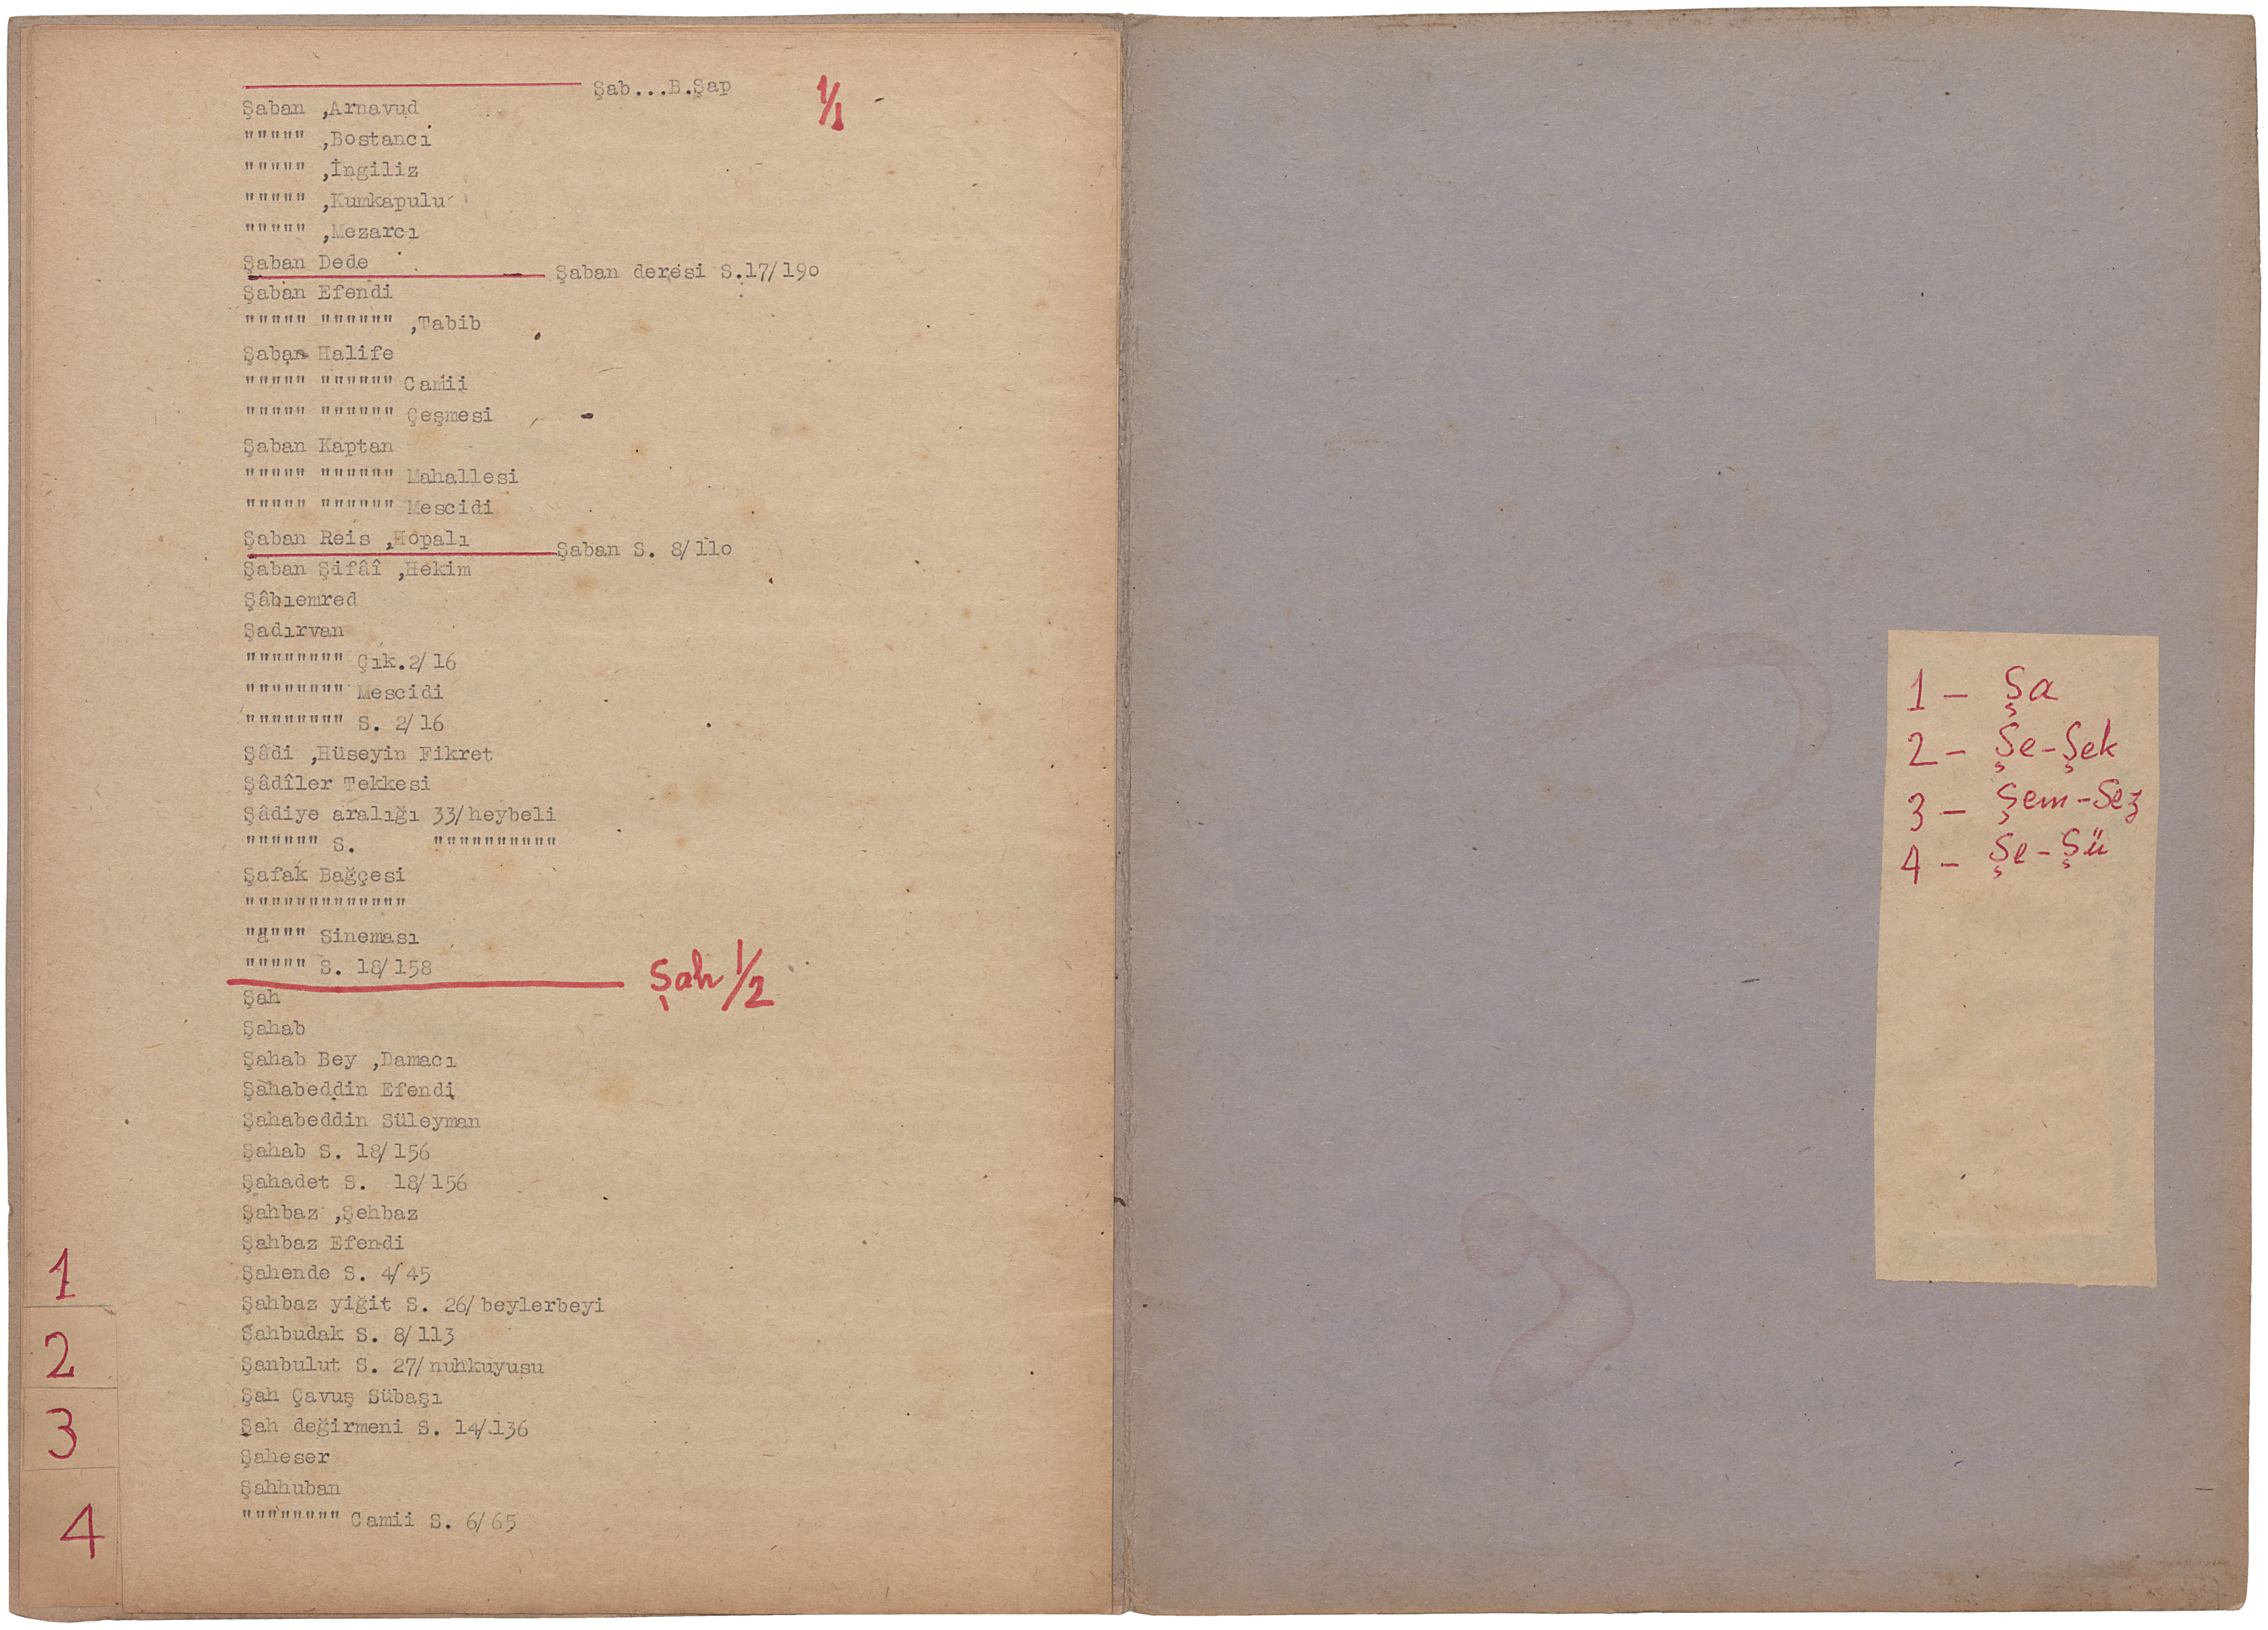 Şab...B.Şap
1/1
Şaban ,Arnavud
""""" ,Bostancı
""""" ,İngiliz
""""" ,Kumkapulu
""""" ,Mezarcı
Şaban Dede
Şaban deresi S.17/19o
Şaban Efendi
""""" """""" ,Tabib
Şaban Halife
""""" """""" Camii
""""" """""" Çeşmesi
Şaban Kaptan
""""" """""" Mahallesi
""""" """""" Mescidi
Şaban Reis ,Hopalı
Şaban S. 8/11o
Şaban Şifâî ,Hekim
Şâbıemred
Şadırvan
"""""""" Çık.2/16
"""""""" Mescidi
"""""""" S. 2/16
Şâdi ,Hüseyin Fikret
Şâdîler Tekkesi
Şâdiye aralığı 33/heybeli
"""""" S. """"""""""
Şafak Bağçesi
"""""""""""""
"a""" Sineması
""""" S. 18/158
Şah 1/2
Şah
Şahab
Şahab Bey ,Damacı
Şahabeddin Efendi
Şahabeddin Süleyman
Şahab S. 18/156
Şahadet S. 18/156
Şahbaz ,Şehbaz
Şahbaz Efendi
Şahende S. 4/45
Şahbaz yiğit S. 26/beylerbeyi
Şahbudak S. 8/113
Şanbulut S. 27/nuhkuyusu
Şah Çavuş Sübaşı
Şah değirmeni S. 14/136
Şaheser
Şahhuban
"""""""" Camii S. 6/65
1
2
3
4
1 – Şa
2 – Şe-Şek
3 – Şem-Sez
4 – Şe-Şü